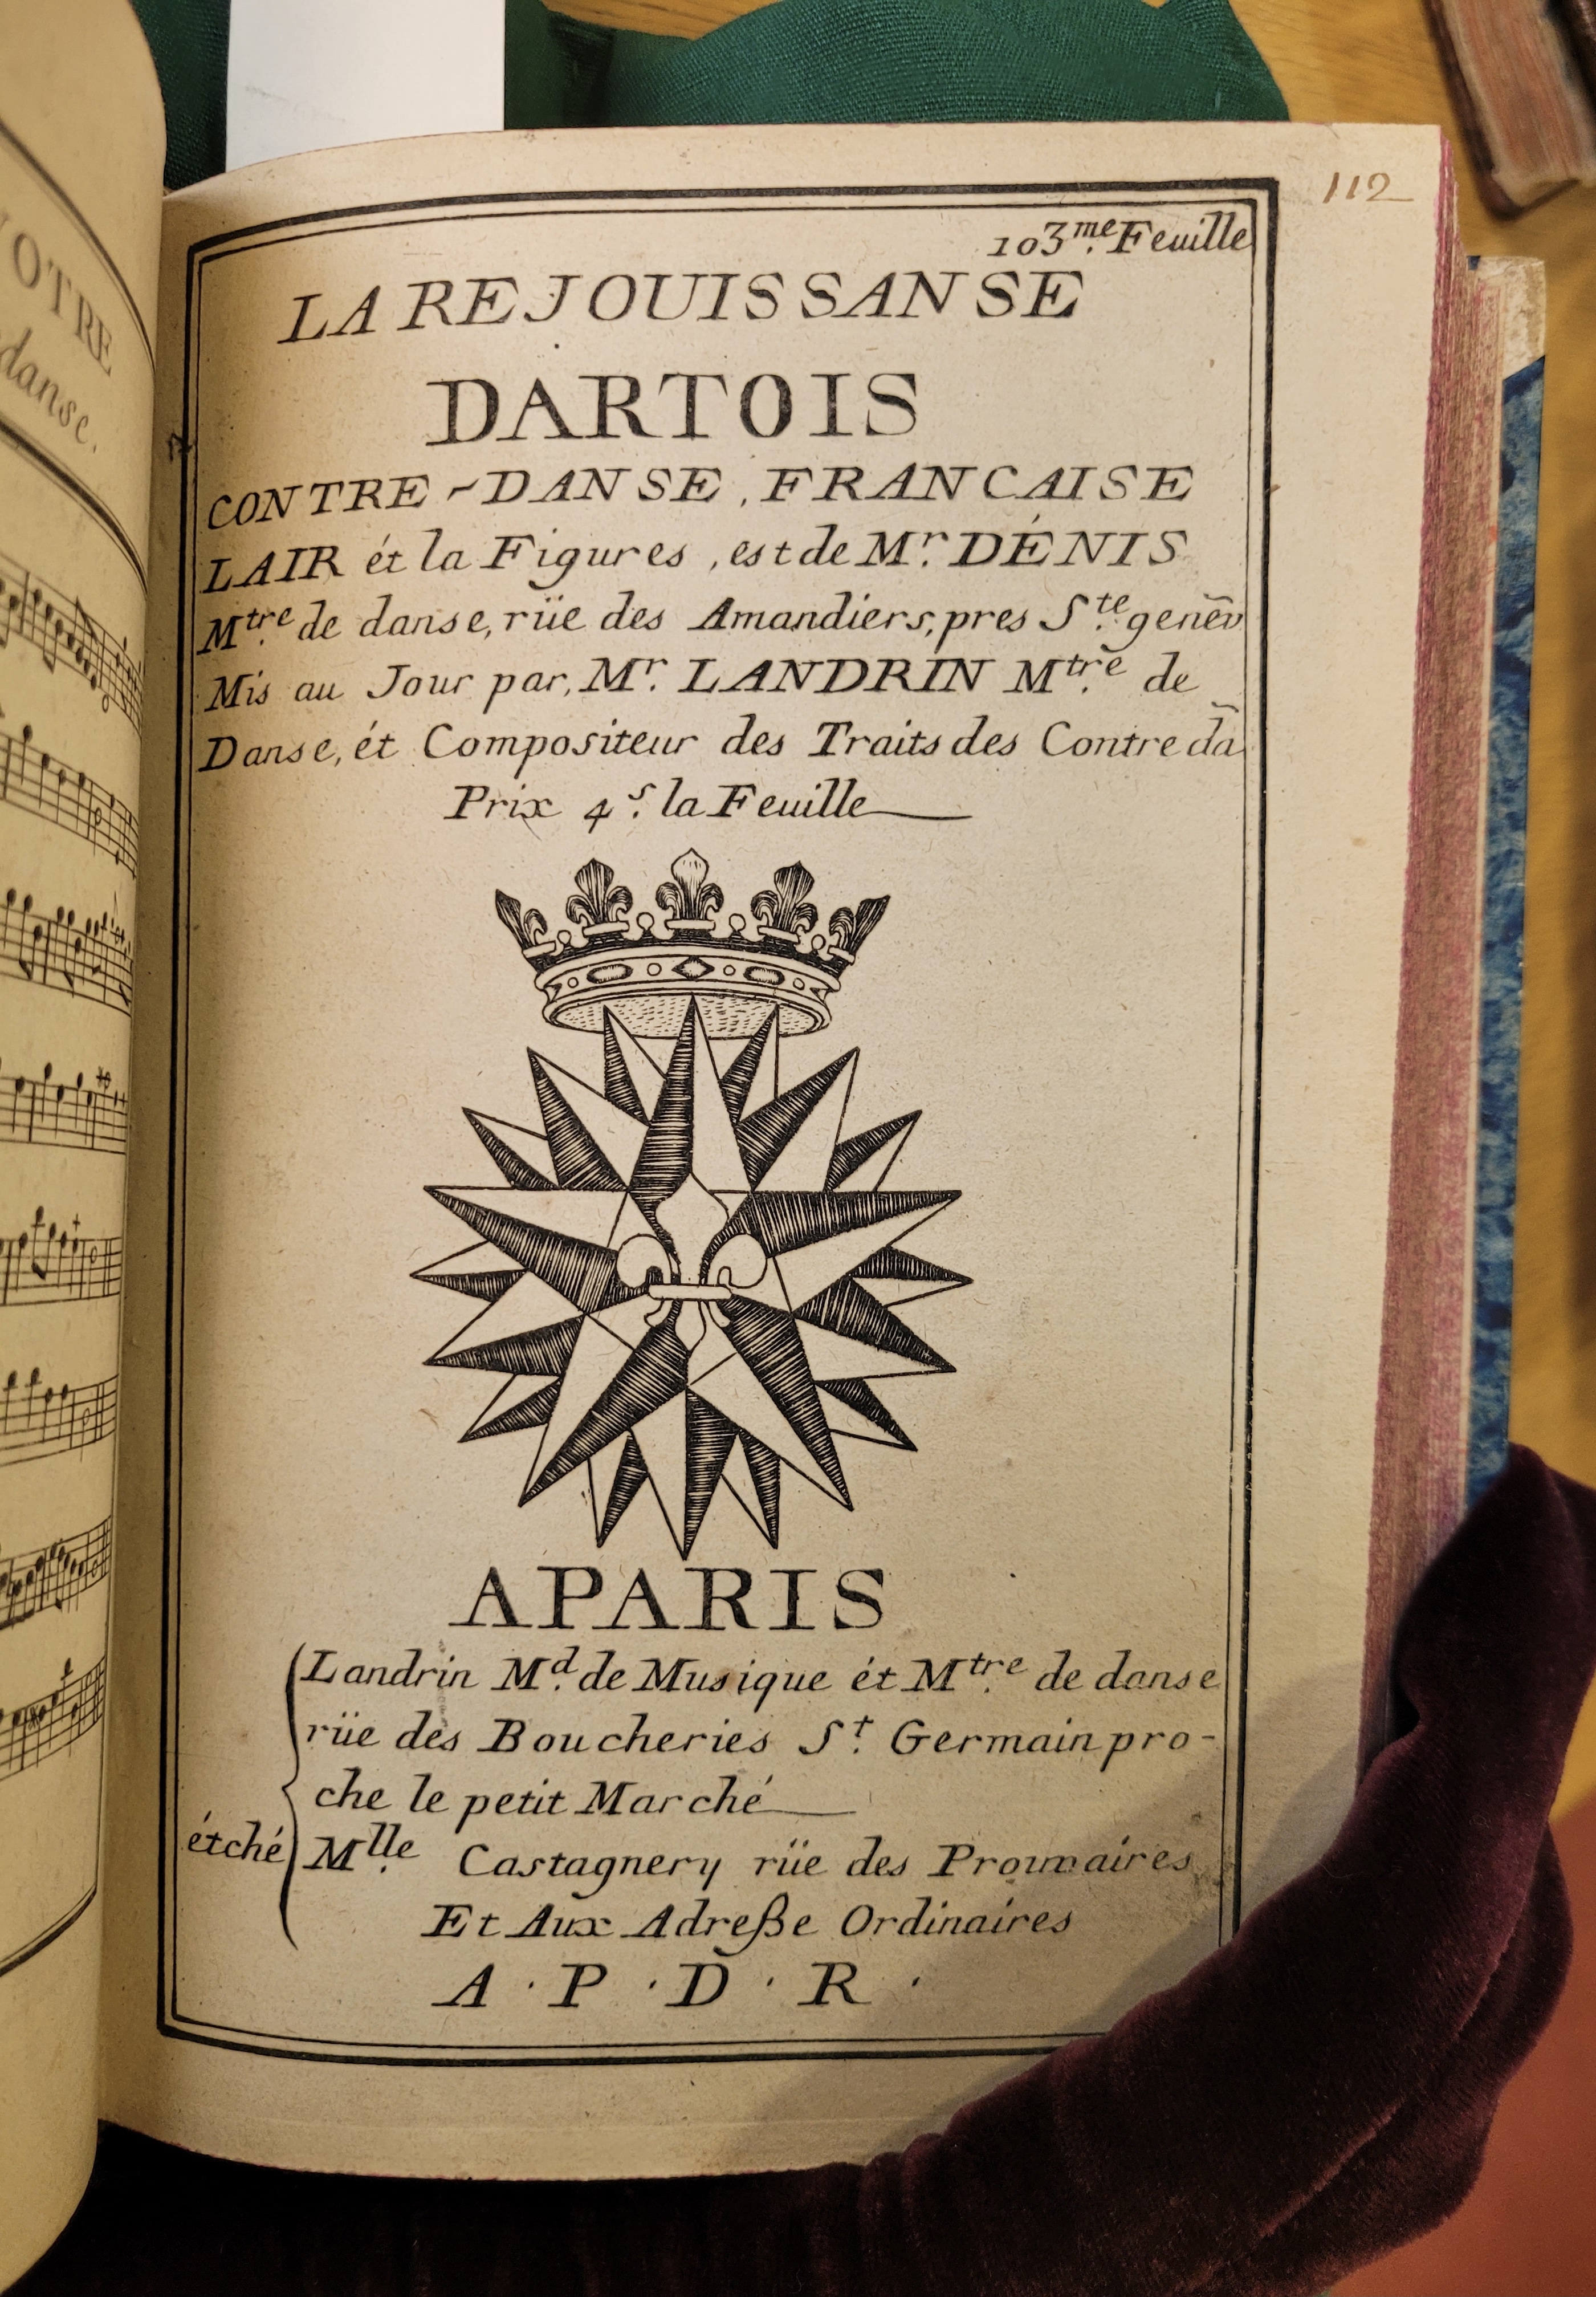 OTRE
danse.
112
103.me Feuille
LA REJOUISSANSE
DARTOIS
CONTRE-DANSE, FRANCAISE
LAIR ét la Figures, est de Mr. DÉNIS
Mtre. de danse, rüe des Amandiers, pres Ste. genēv
Mis au Jour par, Mr. LANDRIN Mtre. de
Danse, ét Compositeur des Traits des Contre dā
Prix 4s. la Feuille
APARIS
Landrin Md. de Musique ét Mtre. de danse
rüe des Boucheries St. Germain pro-
che le petit Marché
étché Mlle. Castagnery rüe des Prouvaires
Et Aux Adreße Ordinaires
A. P. D. R.